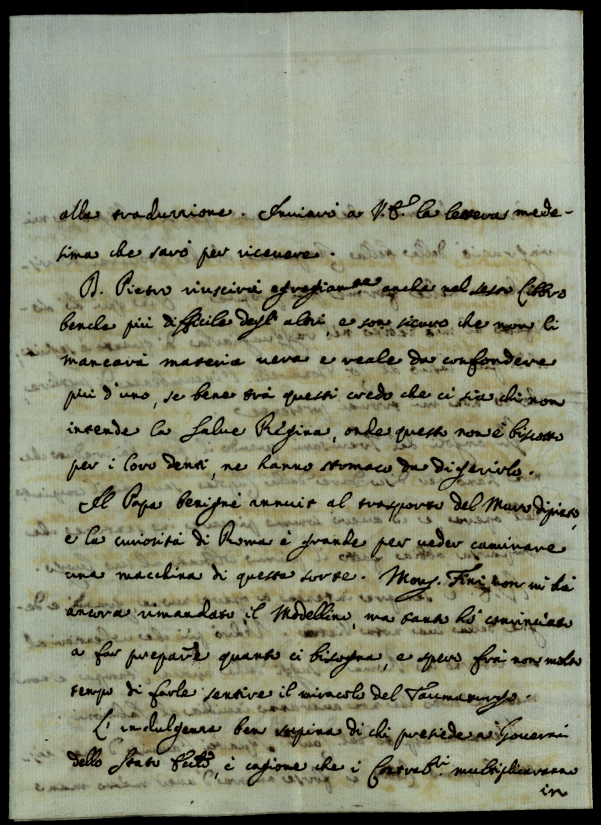 alla traduzzione. Inviarò a V.S. la lettera mede-
sima che sarò per ricevere.
D. Pietro riuscirà egregiam.te anche nel sesto libbro
benche più difficile degl'altri, e son sicuro che non li
mancarà materia vera e reale da confondere
più d'uno, se bene trà questi credo che ci sia chi non
intende la Salve Regina, onde questo non è biscotto
per i loro denti, ne hanno stomaco da digerirlo.
Il Papa benignè annuit al trasporto del Muro dipinto,
e la curiosità di Roma è grande per veder caminare
una macchina di questa sorte. Mons. Fini non mi hà
ancora rimandato il Modellino, ma tanto hò cominciato
a far preparare quanto ci bisogna, e spero frà non molto
tempo di farle sentire il miracolo del Taumaturgo.
L'indulgenza ben supina di chi presiede a Governi
dello Stato Eccl.co, è cagione che i Contrab.ri multiplicaranno
in